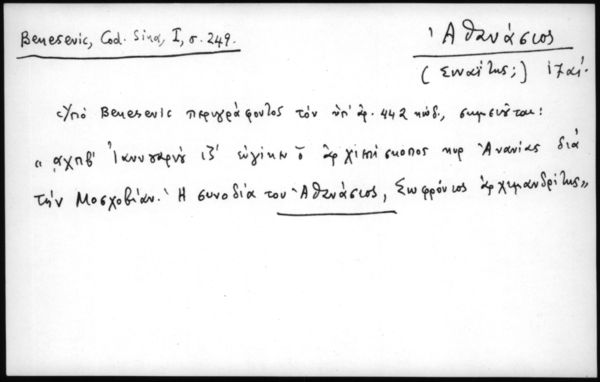 Benesevic, Cod. Sina, I, σ. 249.
Ἀθανάσιος
(Σιναΐτης;) ιζ αἰ.
Ὑπὸ Benesevic περιγράφοντος τὸν ὑπ' ἀρ. 442 κώδ., σημειοῦται:
" ͵αχπβ' Ἰαννουαρίῳ ιζ' εὐγῆκεν ὁ ἀρχιεπίσκοπος κυρ Ἀνανίας διὰ
τὴν Μοσχοβίαν. Ἡ συνοδία του Ἀθανάσιος, Σωφρόνιος ἀρχιμανδρίτης"